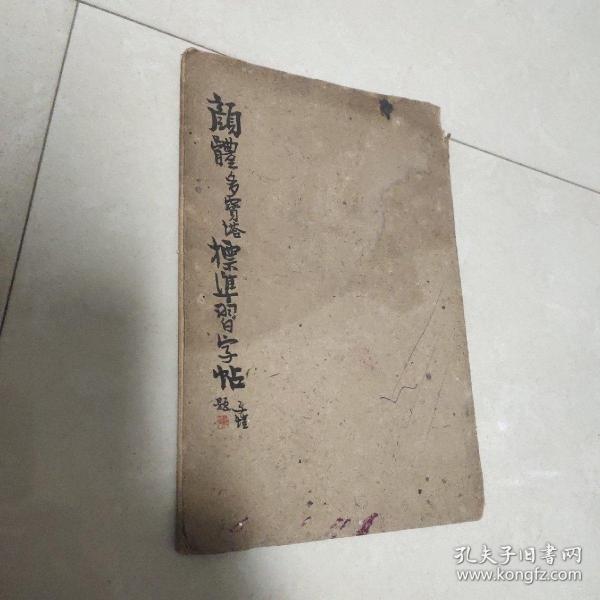 顔體多寳塔標準習字帖
子愷
題
孔夫子旧书网
www.kongfz.com